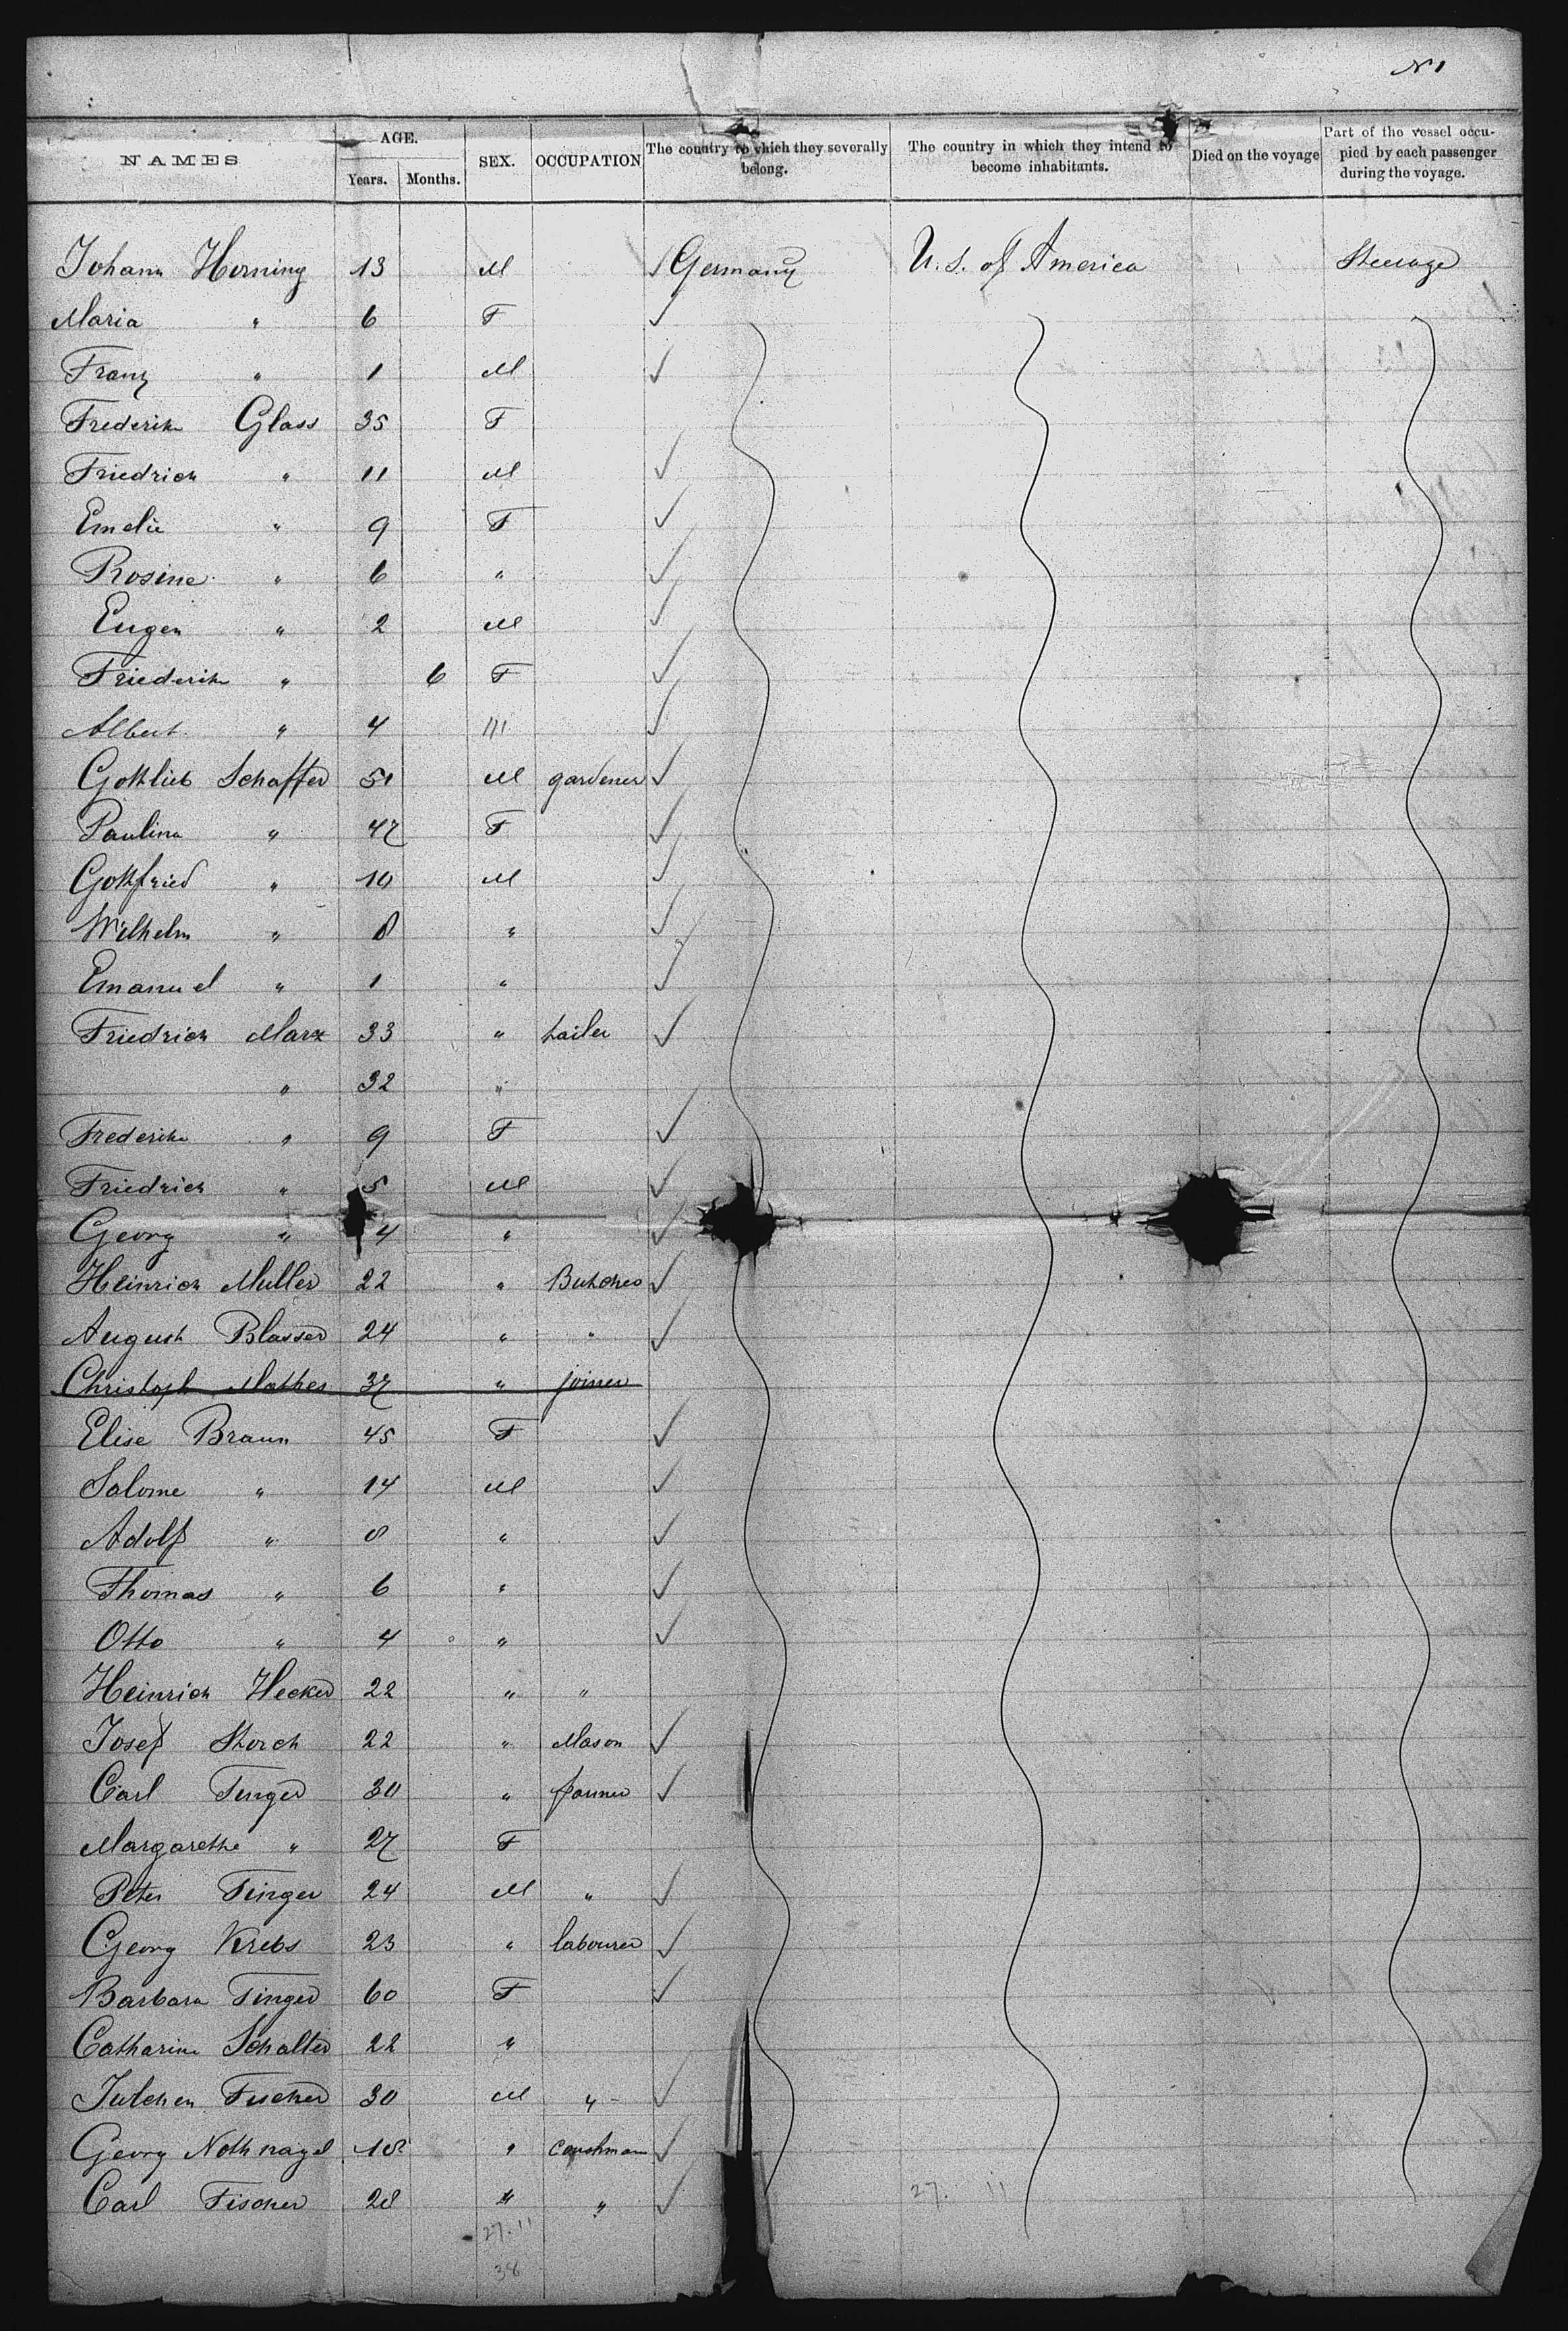 N 1
NAMES AGE. Years. Months. SEX. OCCUPATION The country to which they severally belong. The country in which they intend to become inhabitants. Died on the voyage Part of the vessel occupied by each passenger during the voyage.
Johann Horning 13 M Germany U. S. of America Steerage
Maria " 6 F
Franz " 1 M
Frederike Glass 35 F
Friedrich " 11 M
Emelie " 9 F
Rosine " 6 "
Eugen " 2 M
Friederike " 6 F
Albert " 4 M
Gottlieb Schaffer 51 M gardener
Paulina " 47 F
Gottfried " 10 M
Wilhelm " 8 "
Emanuel " 1 "
Friedrich Marx 33 " tailer
" 32 "
Frederike " 9 F
Friedrich " 5 M
Georg " 4 "
Heinrich Muller 22 " Butcher
August Blasser 24 " "
Christoph Mathes 37 " joiner
Elise Braun 45 F
Salome " 14 M
Adolf " 8 "
Thomas " 6 "
Otto " 4 "
Heinrich Hecker 22 " "
Josef Storch 22 " Mason
Carl Finger 30 " farmer
Margarethe " 27 F
Peter Finger 24 M "
Georg Krebs 23 " labourer
Barbara Finger 60 F
Catharine Schalter 22 "
Julchen Fischer 30 M "
Georg Nothnagel 18 " coachman
Carl Fischer 28 " "
27. 11
27. 11
38